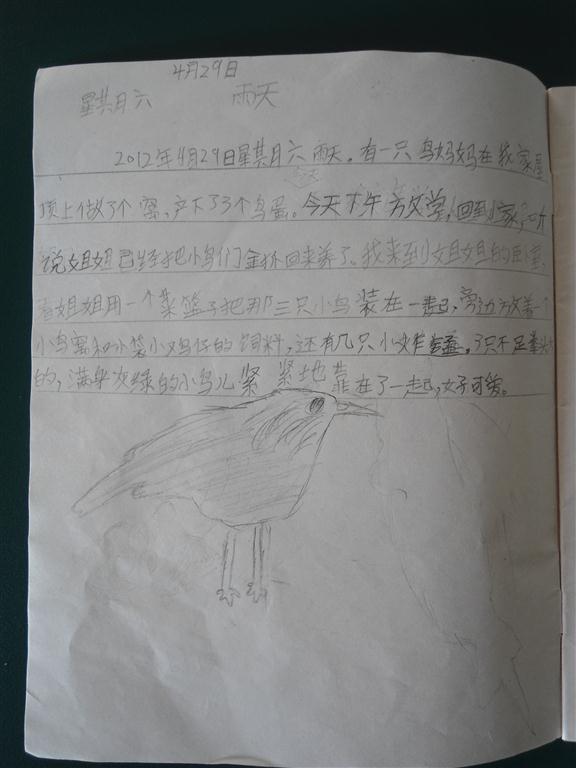 4月29日
星其月六 雨天
2012年4月29日星其月六 雨天。有一只鸟妈妈在我家屋
顶上做了个窝,产下了3个鸟蛋。今天下午放学,回到家,听
说姐姐已经把小鸟们全怀回来养了。我来到姐姐的卧室,
看姐姐用一个菜篮子把那三只小鸟装在一起,旁边放着一个
小鸟窝和小袋小鸡仔的饲料,还有几只小蚱蜢。3只不足拳头大
的,满身灰绿的小鸟儿紧紧地靠在了一起,好可爱。